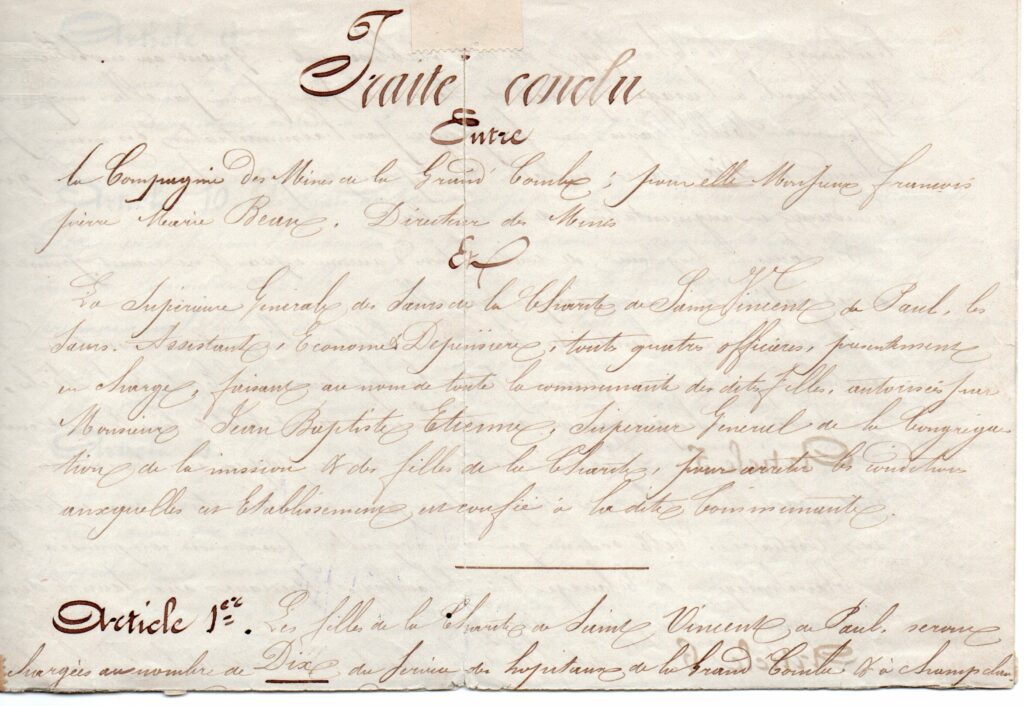 Traité conclu
Entre
la Compagnie des Mines de la Grand Combe ; pour elle Monsieur françois
pierre Marie Beau, Directeur des Mines
Et
La Supérieure Générale des Sœurs de la Charité de Saint Vincent de Paul, les
Sœurs Assistante, Econome & Dépensière, toutes quatres officières, présentement
en charge, faisant au nom de toute la communauté des dites filles, autorisées par
Monsieur Jean Baptiste Etienne, Supérieur Général de la Congréga
tion de la mission & des filles de la Charité, pour arrêter les conditions
auxquelles cet Etablissement est confié à la dite Communauté.
Article 1er. Les filles de la Charité de Saint Vincent de Paul, seront
chargées au nombre de Dix du service des hôpitaux de la Grand Combe & à Champclau